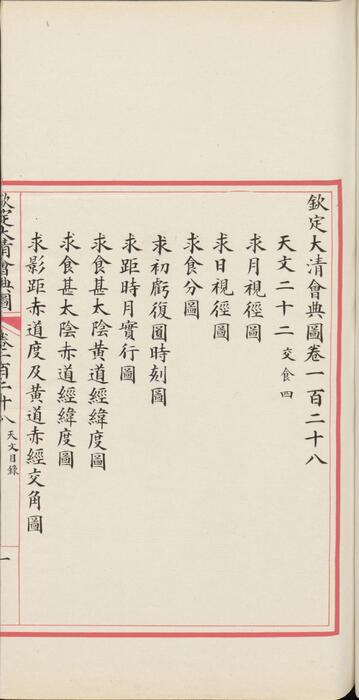 欽定大清會典圖卷一百二十八
天文二十二 交食四
求月視徑圖
求日視徑圖
求食分圖
求初虧復圓時刻圖
求距時月實行圖
求食甚太陰黃道經緯度圖
求食甚太陰赤道經緯度圖
求影距赤道度及黃道赤經交角圖
欽定大清會典圖
卷一百二十八 天文目錄
一